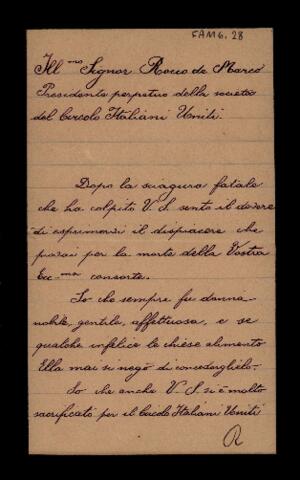 FAM6. 28
Ill mo Signor Rocco de Marco
Presidente perpetuo della societa
del Circolo Italiani Uniti.
Dopo la sciagura fatale
che ha colpito V. S. sento il dovere
di esprimervi il dispiacere che
provai per la morte della Vostra
Ecc-ma consorte.
So che sempre fu donna
nobile, gentile, affettuosa, e se
qualche infelice le chiese alimento
Ella mai si negò di concederglielo.-
So che anche V. S. si è molto
sacrificato per il Circolo Italiani Uniti